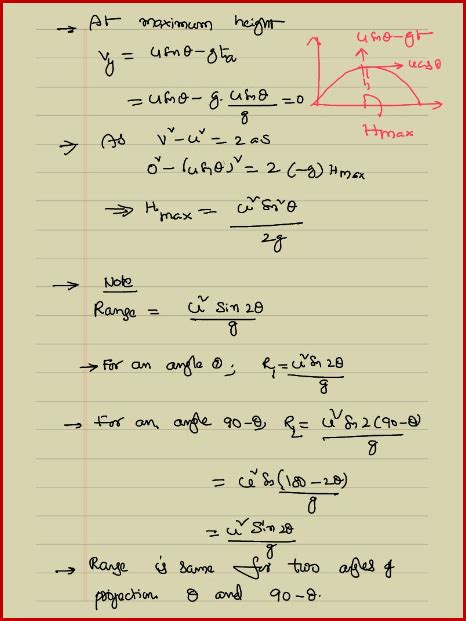 → At maximum height
v_y = u sinθ - gt_a
= u sinθ - g. u sinθ/g = 0
u sinθ - gt
u cosθ
h
Hmax
→ As v² - u² = 2as
0² - (u sinθ)² = 2 (-g) Hmax
⇒ Hmax = u² sin²θ / 2g
→ Note
Range = u² sin 2θ / g
→ For an angle θ; R₁ = u² sin 2θ / g
→ For an angle 90-θ, R₂ = u² sin 2(90-θ) / g
= u² sin(180 - 2θ) / g
= u² sin 2θ / g
→ Range is same for two angles of
projection θ and 90-θ.